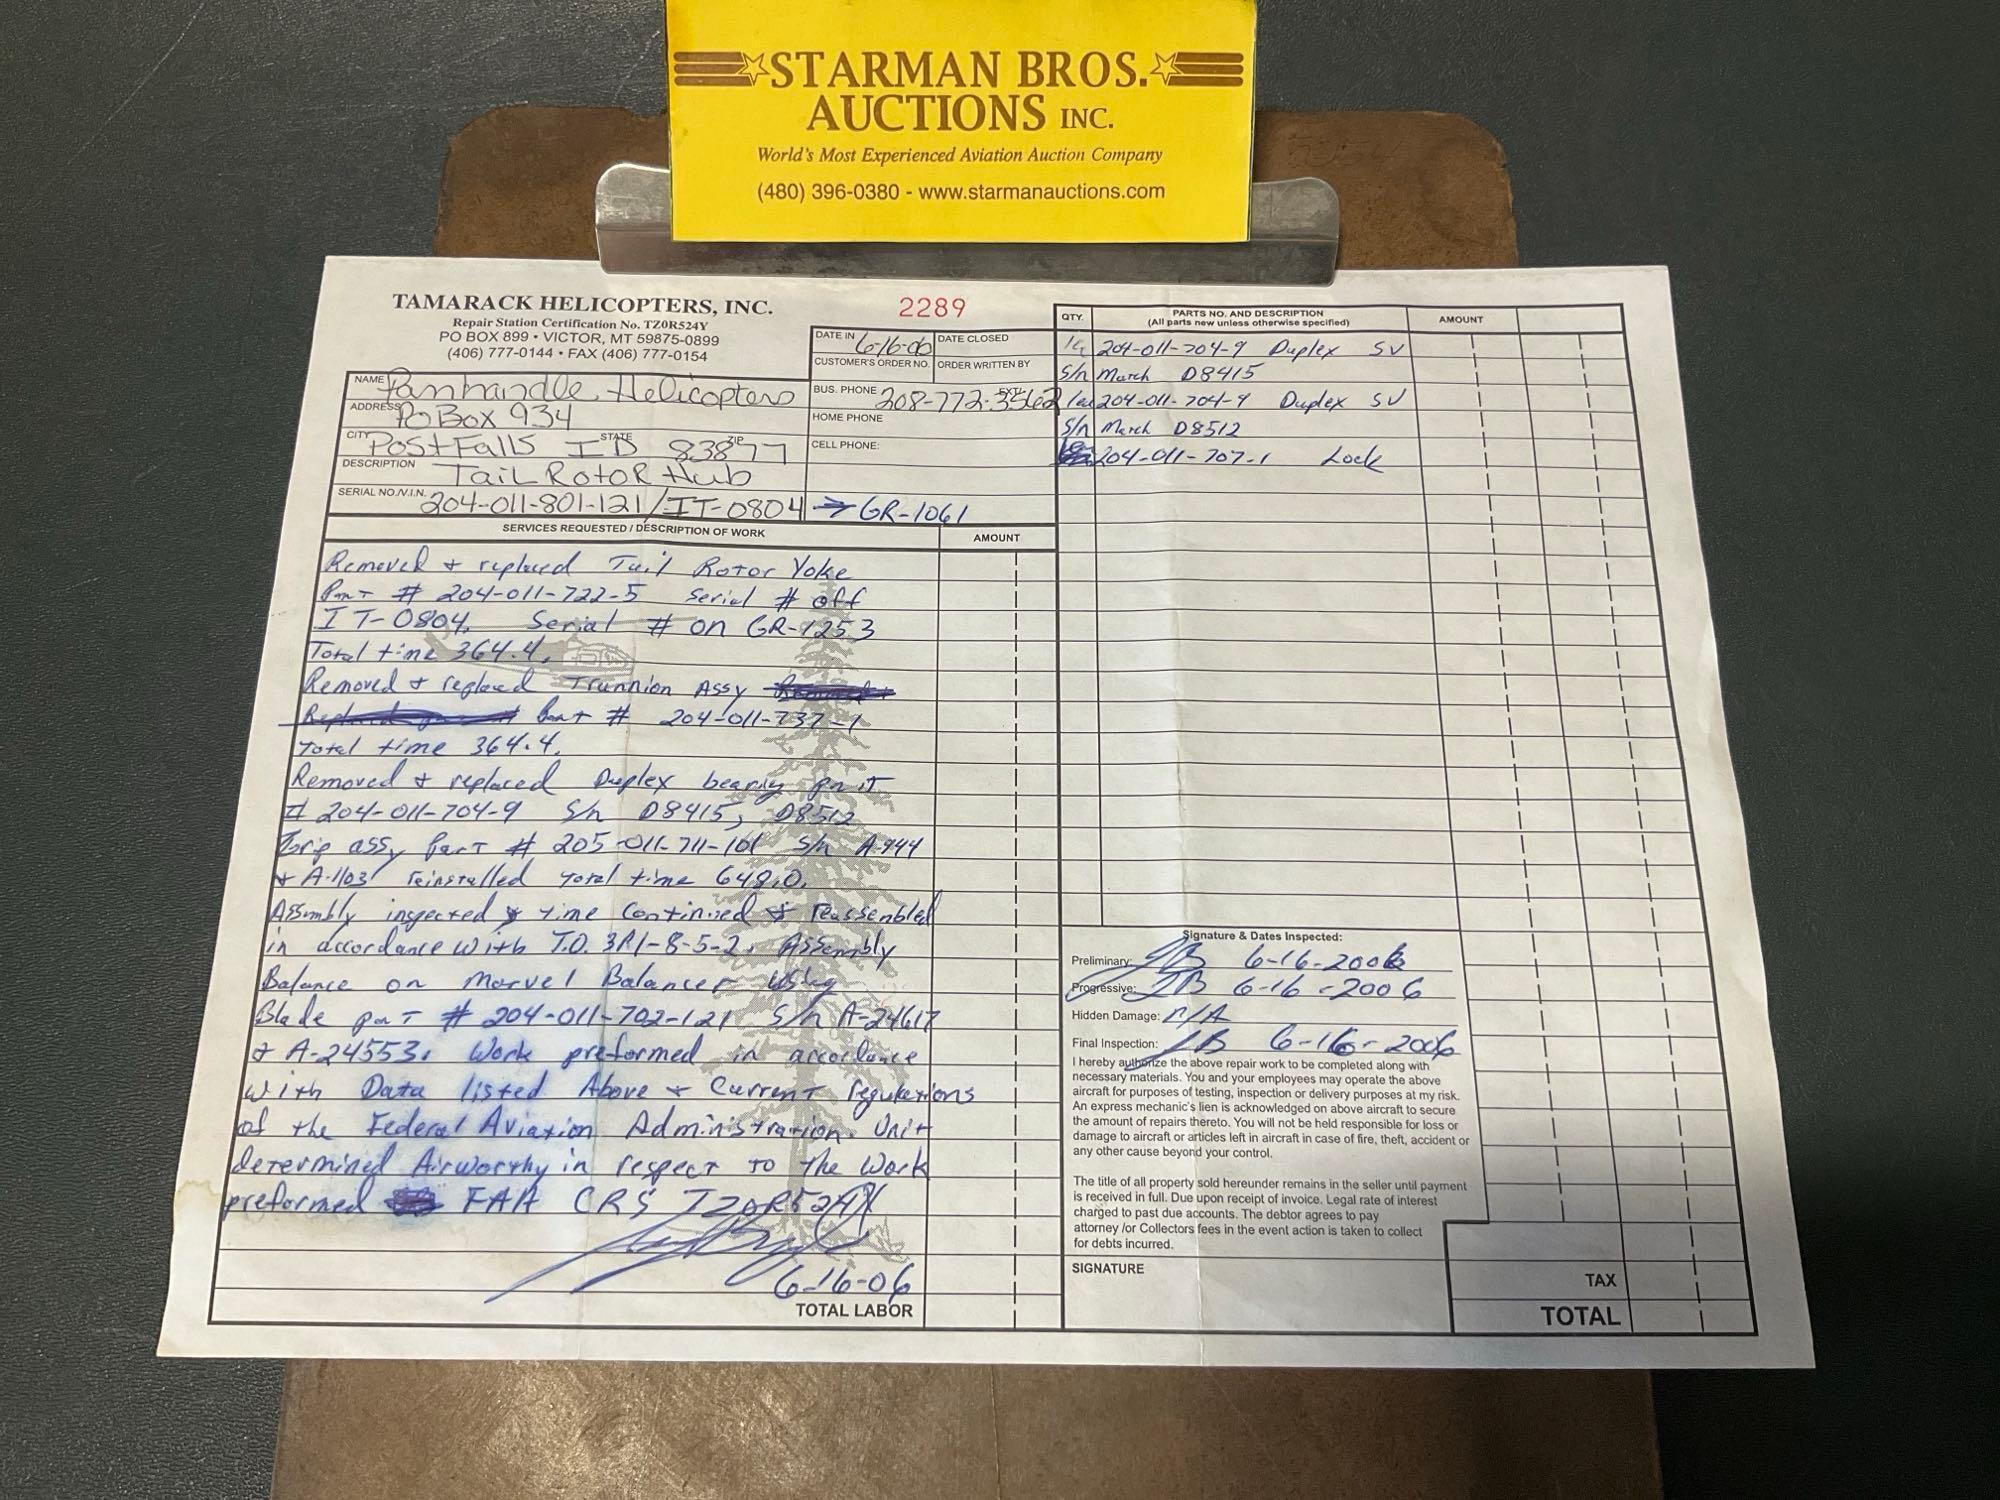 STARMAN BROS.
AUCTIONS INC.
World's Most Experienced Aviation Auction Company
(480) 396-0380 - www.starmanauctions.com
TAMARACK HELICOPTERS, INC.
Repair Station Certification No. TZ0R524Y
PO BOX 899 • VICTOR, MT 59875-0899
(406) 777-0144 • FAX (406) 777-0154
2289
DATE IN 6-16-06 DATE CLOSED
CUSTOMER'S ORDER NO. ORDER WRITTEN BY
NAME Panhandle Helicopters
BUS. PHONE 208-772-3562 EXT.
ADDRESS PO Box 934
HOME PHONE
CITY Post Falls STATE ID ZIP 83877
CELL PHONE:
DESCRIPTION Tail Rotor Hub
SERIAL NO./V.I.N. 204-011-801-121/IT-0804 → GR-1061
SERVICES REQUESTED / DESCRIPTION OF WORK AMOUNT
Removed + replaced Tail Rotor Yoke
Part # 204-011-722-5 Serial # off
IT-0804. Serial # on GR-1253
Total time 364.4.
Removed + replaced Trunnion Assy
Part # 204-011-737-1
Total time 364.4.
Removed + replaced Duplex bearing part
# 204-011-704-9 S/n D8415, D8512
Grip assy Part # 205-011-711-101 S/n A-944
+ A-1103 reinstalled total time 648.0.
Assembly inspected + time Continued + reassembled
in accordance with T.O. 3R1-8-5-2. Assembly
Balance on Marvel Balancer using
Blade part # 204-011-702-121 S/n A-24617
+ A-24553. Work preformed in accordance
with Data listed Above + Current regulations
of the Federal Aviation Administration. Unit
determined Airworthy in respect to the Work
preformed FAA CRS TZ0R524Y
6-16-06
TOTAL LABOR
QTY. PARTS NO. AND DESCRIPTION AMOUNT
(All parts new unless otherwise specified)
204-011-704-9 Duplex SV
S/n March D8415
1ea 204-011-704-9 Duplex SV
S/n March D8512
204-011-707-1 Lock
Signature & Dates Inspected:
Preliminary: JB 6-16-2006
Progressive: JB 6-16-2006
Hidden Damage: n/A
Final Inspection: JB 6-16-2006
I hereby authorize the above repair work to be completed along with
necessary materials. You and your employees may operate the above
aircraft for purposes of testing, inspection or delivery purposes at my risk.
An express mechanic's lien is acknowledged on above aircraft to secure
the amount of repairs thereto. You will not be held responsible for loss or
damage to aircraft or articles left in aircraft in case of fire, theft, accident or
any other cause beyond your control.
The title of all property sold hereunder remains in the seller until payment
is received in full. Due upon receipt of invoice. Legal rate of interest
charged to past due accounts. The debtor agrees to pay
attorney /or Collectors fees in the event action is taken to collect
for debts incurred.
SIGNATURE
TAX
TOTAL